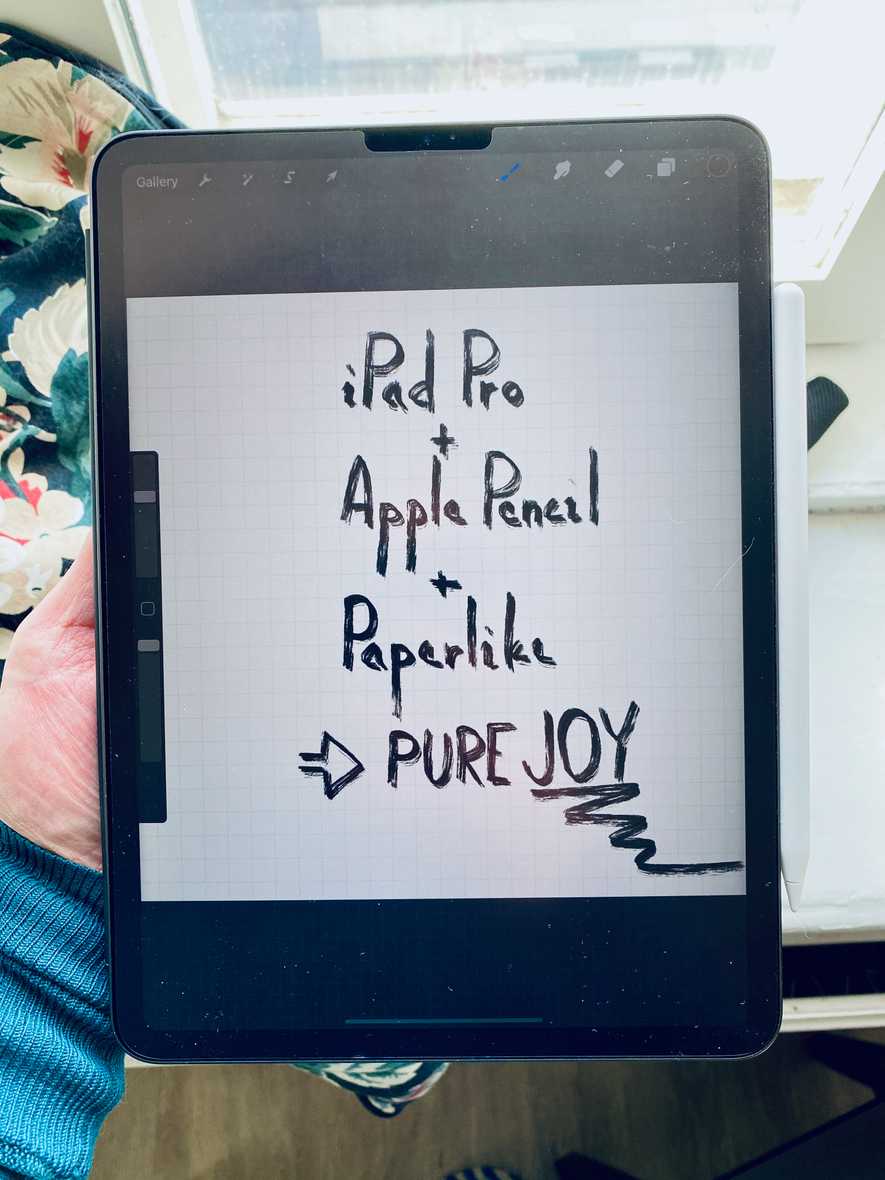 Gallery
iPad Pro
+
Apple Pencil
+
Paperlike
⇨ PURE JOY